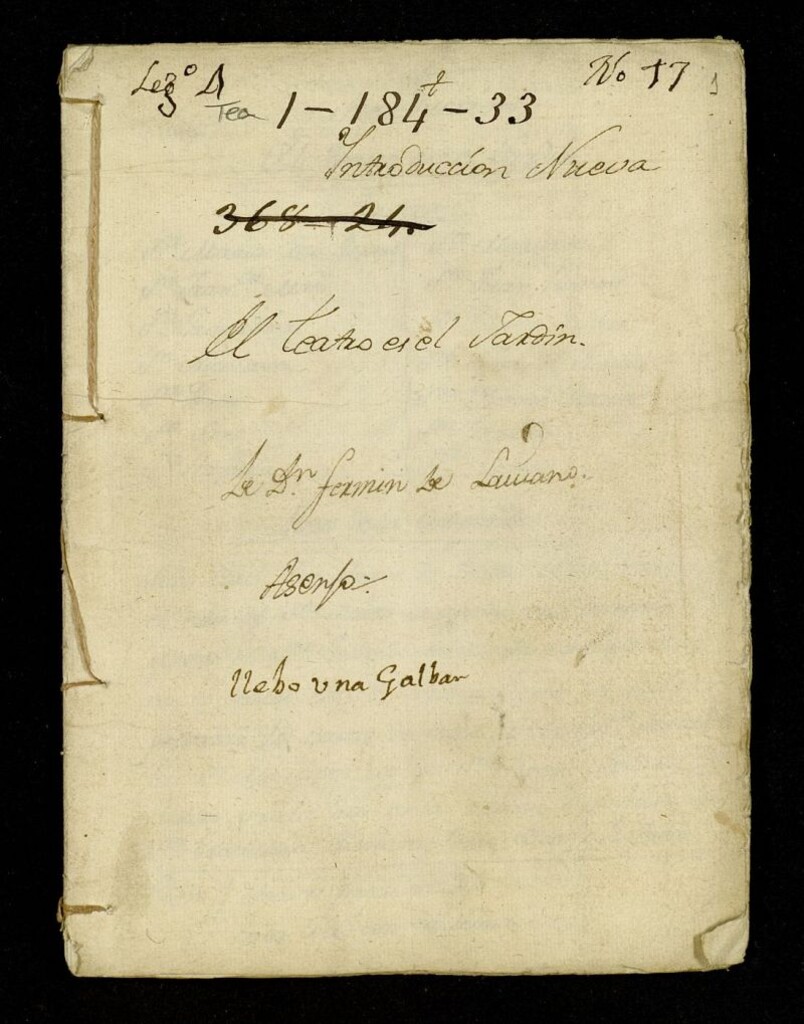 Leg.º 4 No 17 1
Tea 1-184-33
✝
Introducción Nueva
368-24.
El teatro es el Jardin.
De Dn. fermin de Laviano.
Asenso.
llebo vna Galban